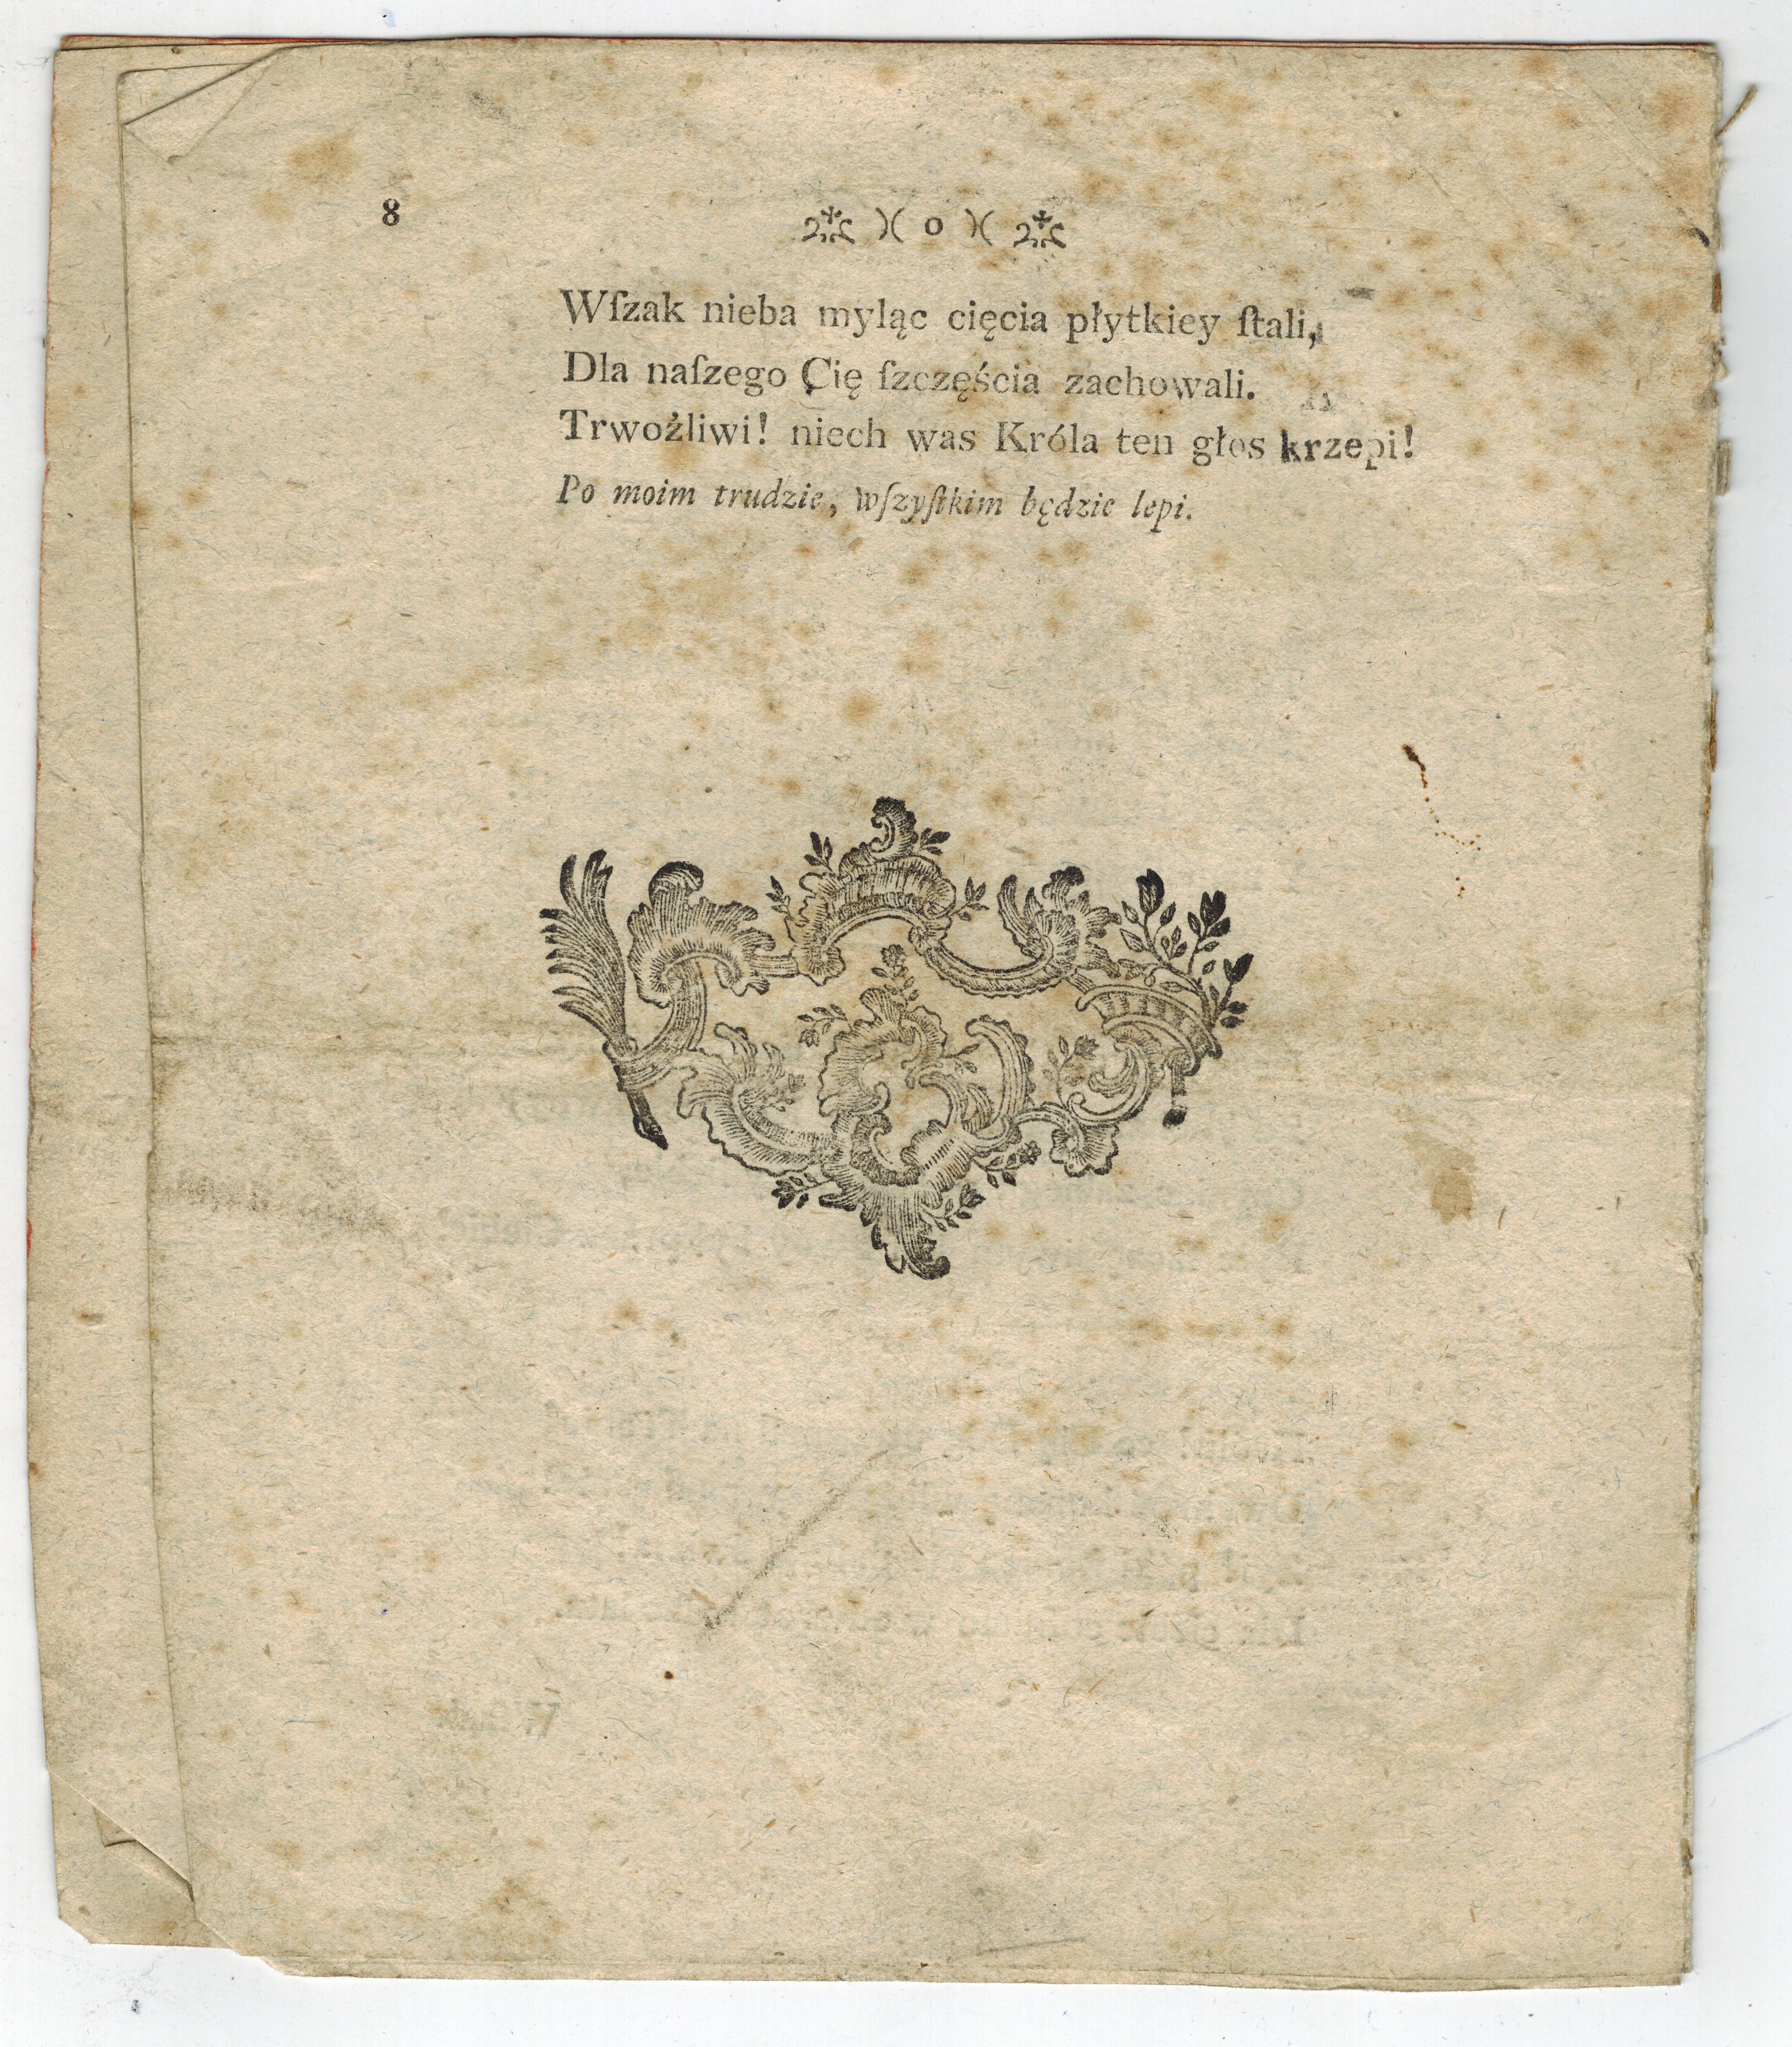 8
)( o )(
Wſzak nieba myląc cięcia płytkiey ſtali,
Dla naſzego Cię ſzczęścia zachowali.
Trwożliwi! niech was Króla ten głos krzepi!
Po moim trudzie, wſzyſtkim będzie lepi.